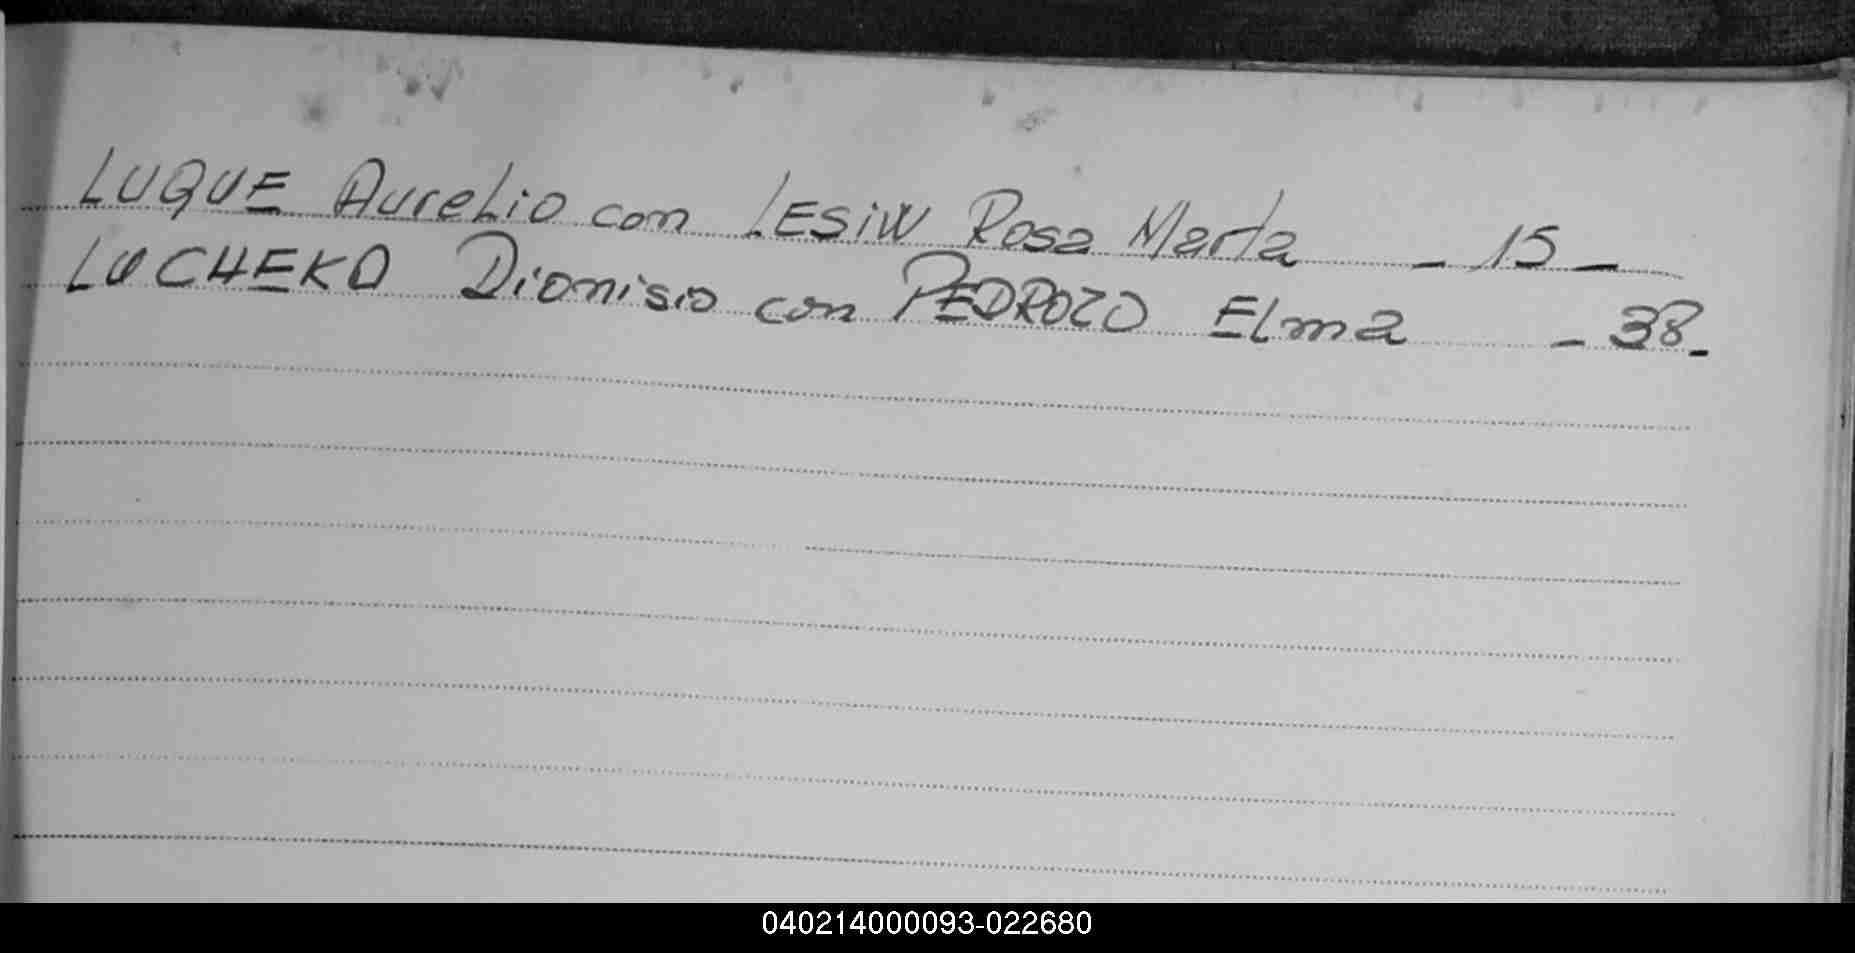 LUQUE Aurelio con LESiW Rosa Marta - 15 -
LUCHEKO Dionisio con PEDROZO Elma - 38 -
040214000093-022680